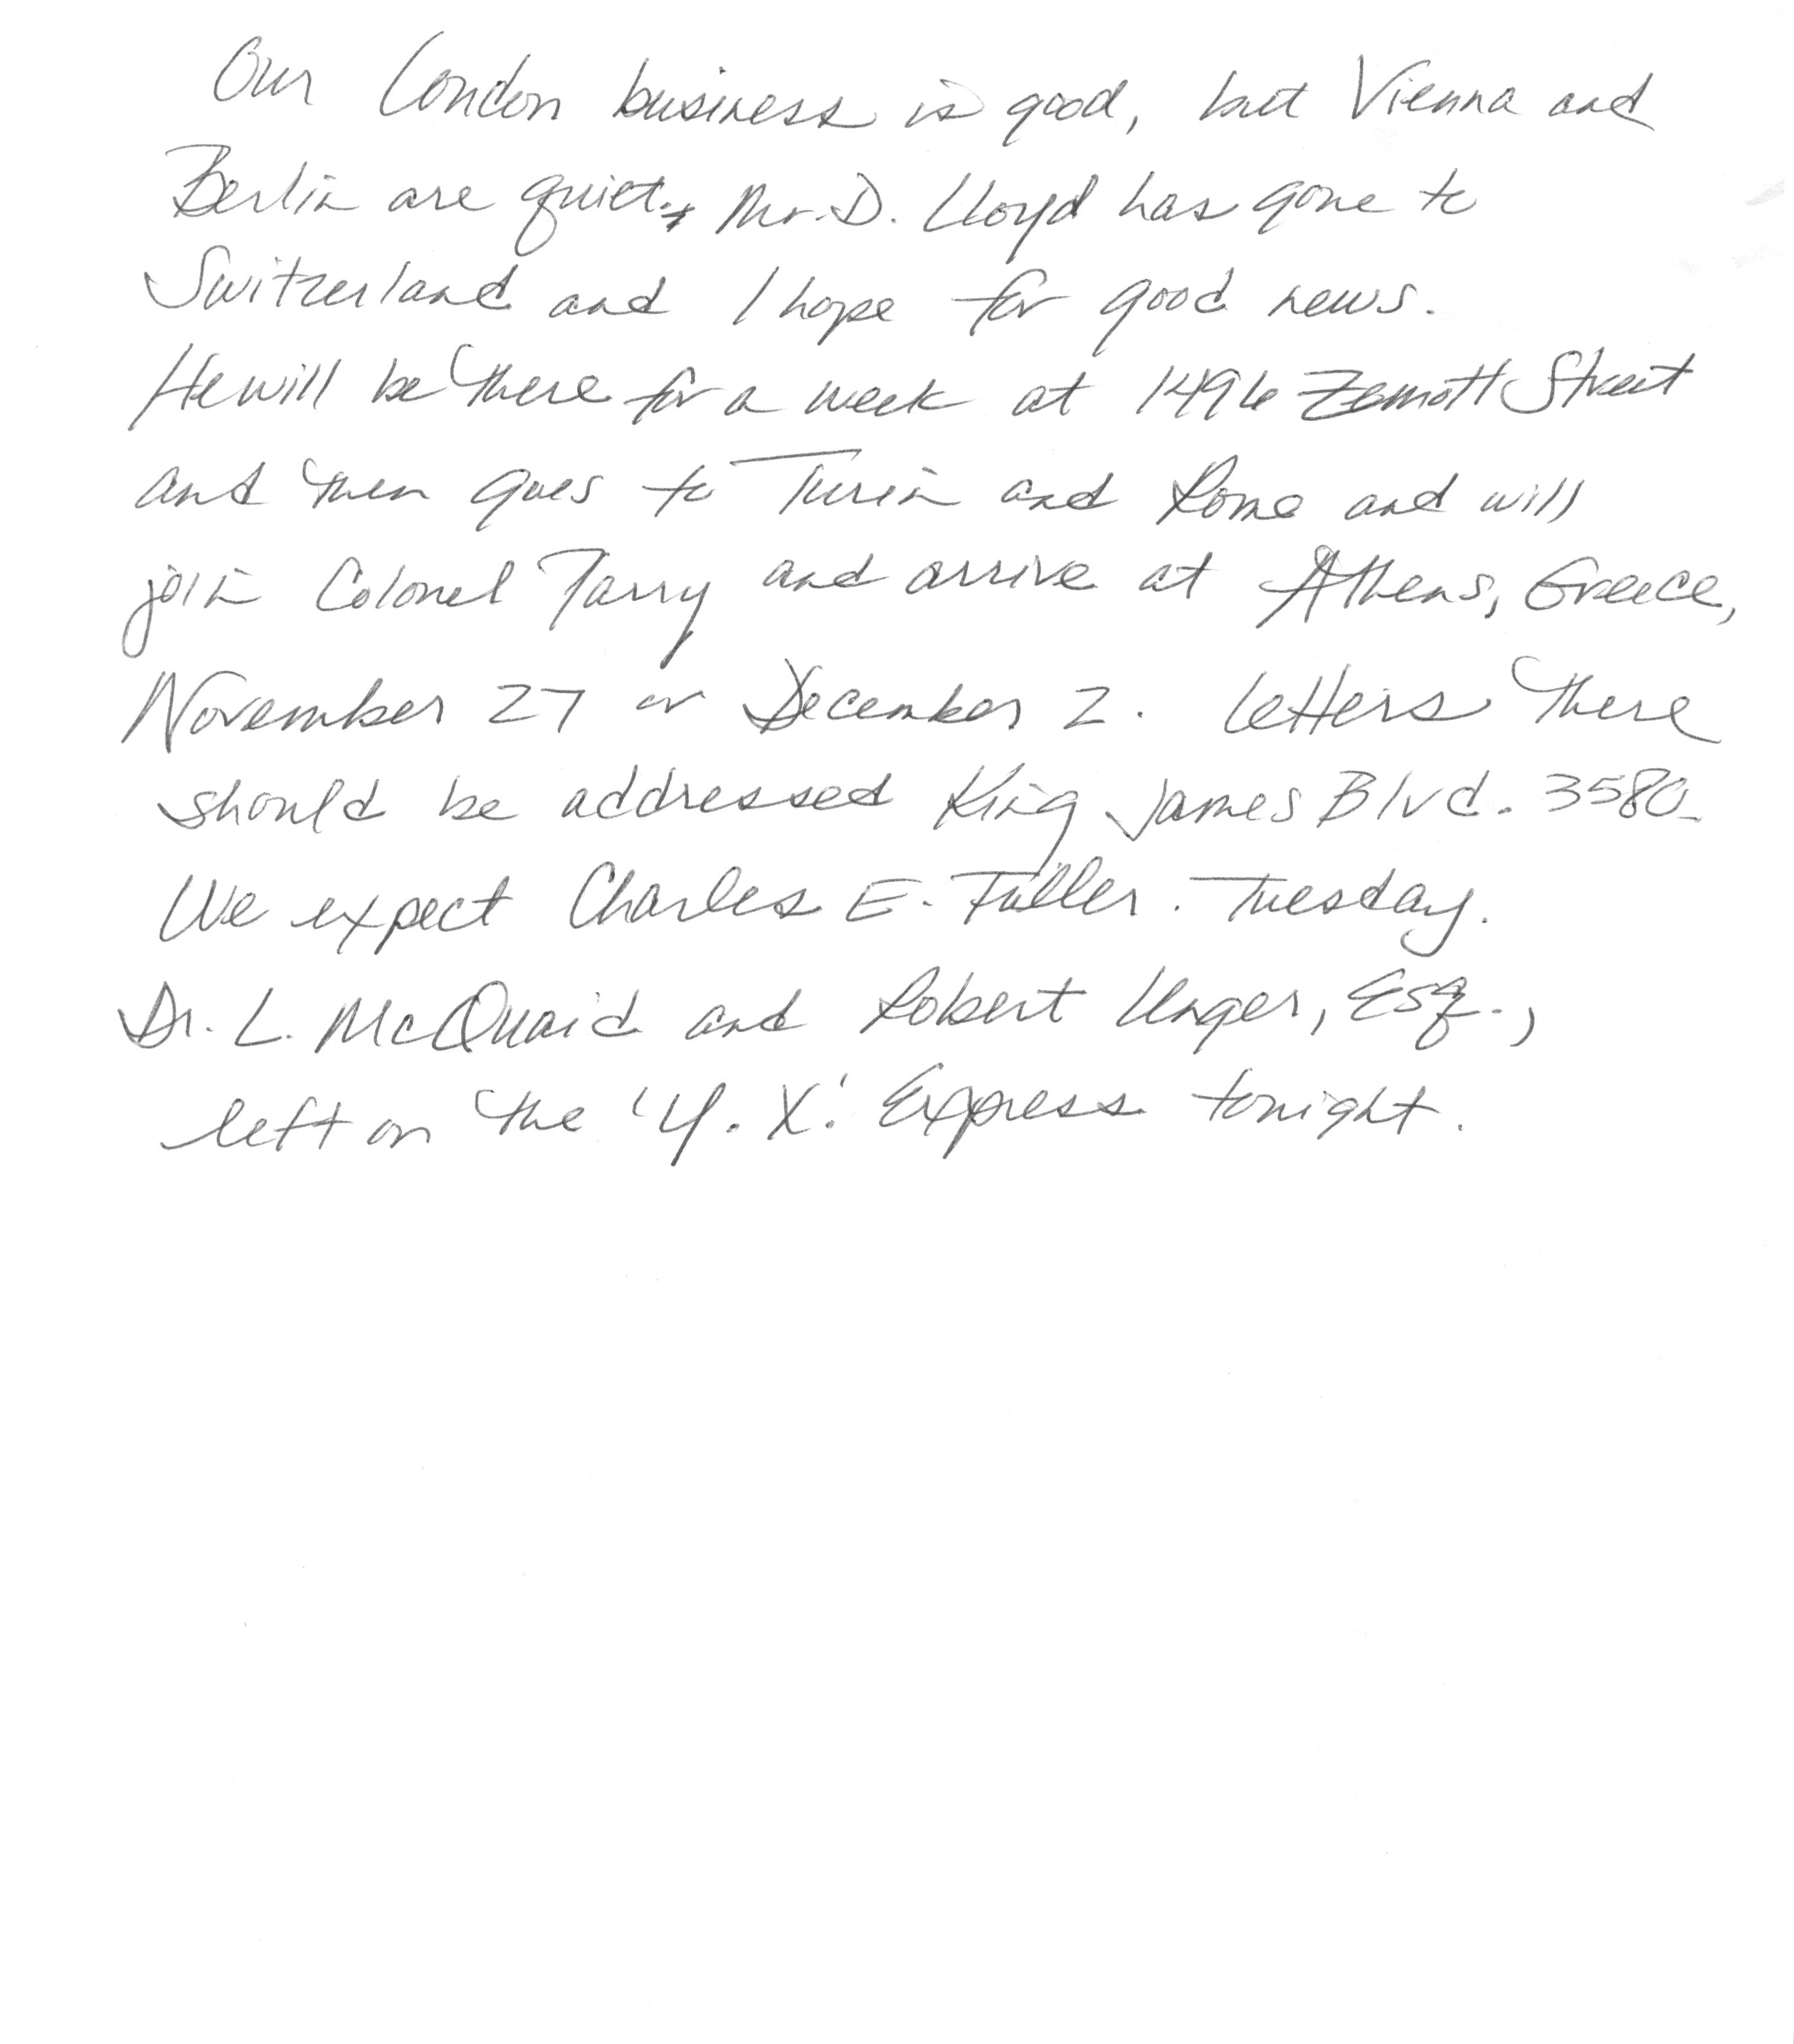 Our London business is good, but Vienna and
Berlin are quiet. Mr. D. Lloyd has gone to
Switzerland and I hope for good news.
He will be there for a week at 1496 Zemott Street
and then goes to Turin and Rome and will
join Colonel Parry and arrive at Athens, Greece,
November 27 or December 2. Letters there
should be addressed King James Blvd. 3580.
We expect Charles E. Fuller. Tuesday.
Dr. L. McQuaid and Robert Unger, Esq.,
left on the 'Y. X.' Express tonight.